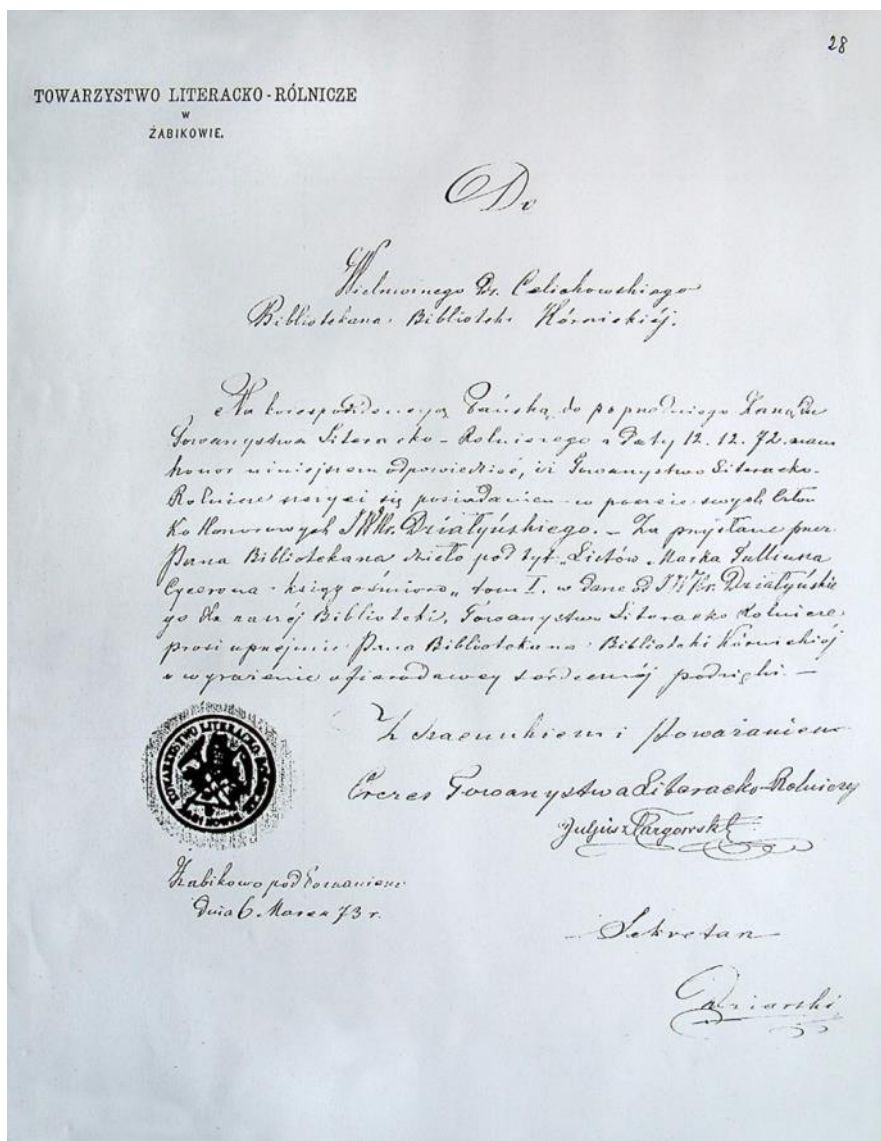 28
TOWARZYSTWO LITERACKO-RÓLNICZE
W
ŻABIKOWIE.
Do
Wielmożnego Dr. Celichowskiego
Bibliotekarza Biblioteki Kórnickiéj.
Na korespondencyą Pańską do poprzedniego Zarządu
Towarzystwa Literacko-Rolniczego z daty 12.12.72. mam
honor niniejszem odpowiedzieć, iż Towarzystwo Literacko-
Rolnicze szczyci się posiadaniem w poczcie swych Człon
ków Honorowych JWHr. Działyńskiego. – Za przysłane przez
Pana Bibliotekarza dzieło pod tyt. „Listów Marka Tulliusza
Cycerona ksiąg ośmioro" tom I. w darze od JWHr. Działyńskie
go dla naszéj Biblioteki, Towarzystwo Literacko Rolnicze
prosi uprzejmie Pana Bibliotekarza Biblioteki Kórnickiéj
o wyrażenie ofiarodawcy serdecznéj podzięki. –
Z szacunkiem i Poważaniem
Prezes Towarzystwa Literacko-Rolniczego
Juljusz Targowski
TOWARZYSTWO LITERACKO-ROLNICZE
ŻABIKOWIE
Żabikowo pod Poznaniem
Dnia 6. Marca 73 r.
Sekretarz